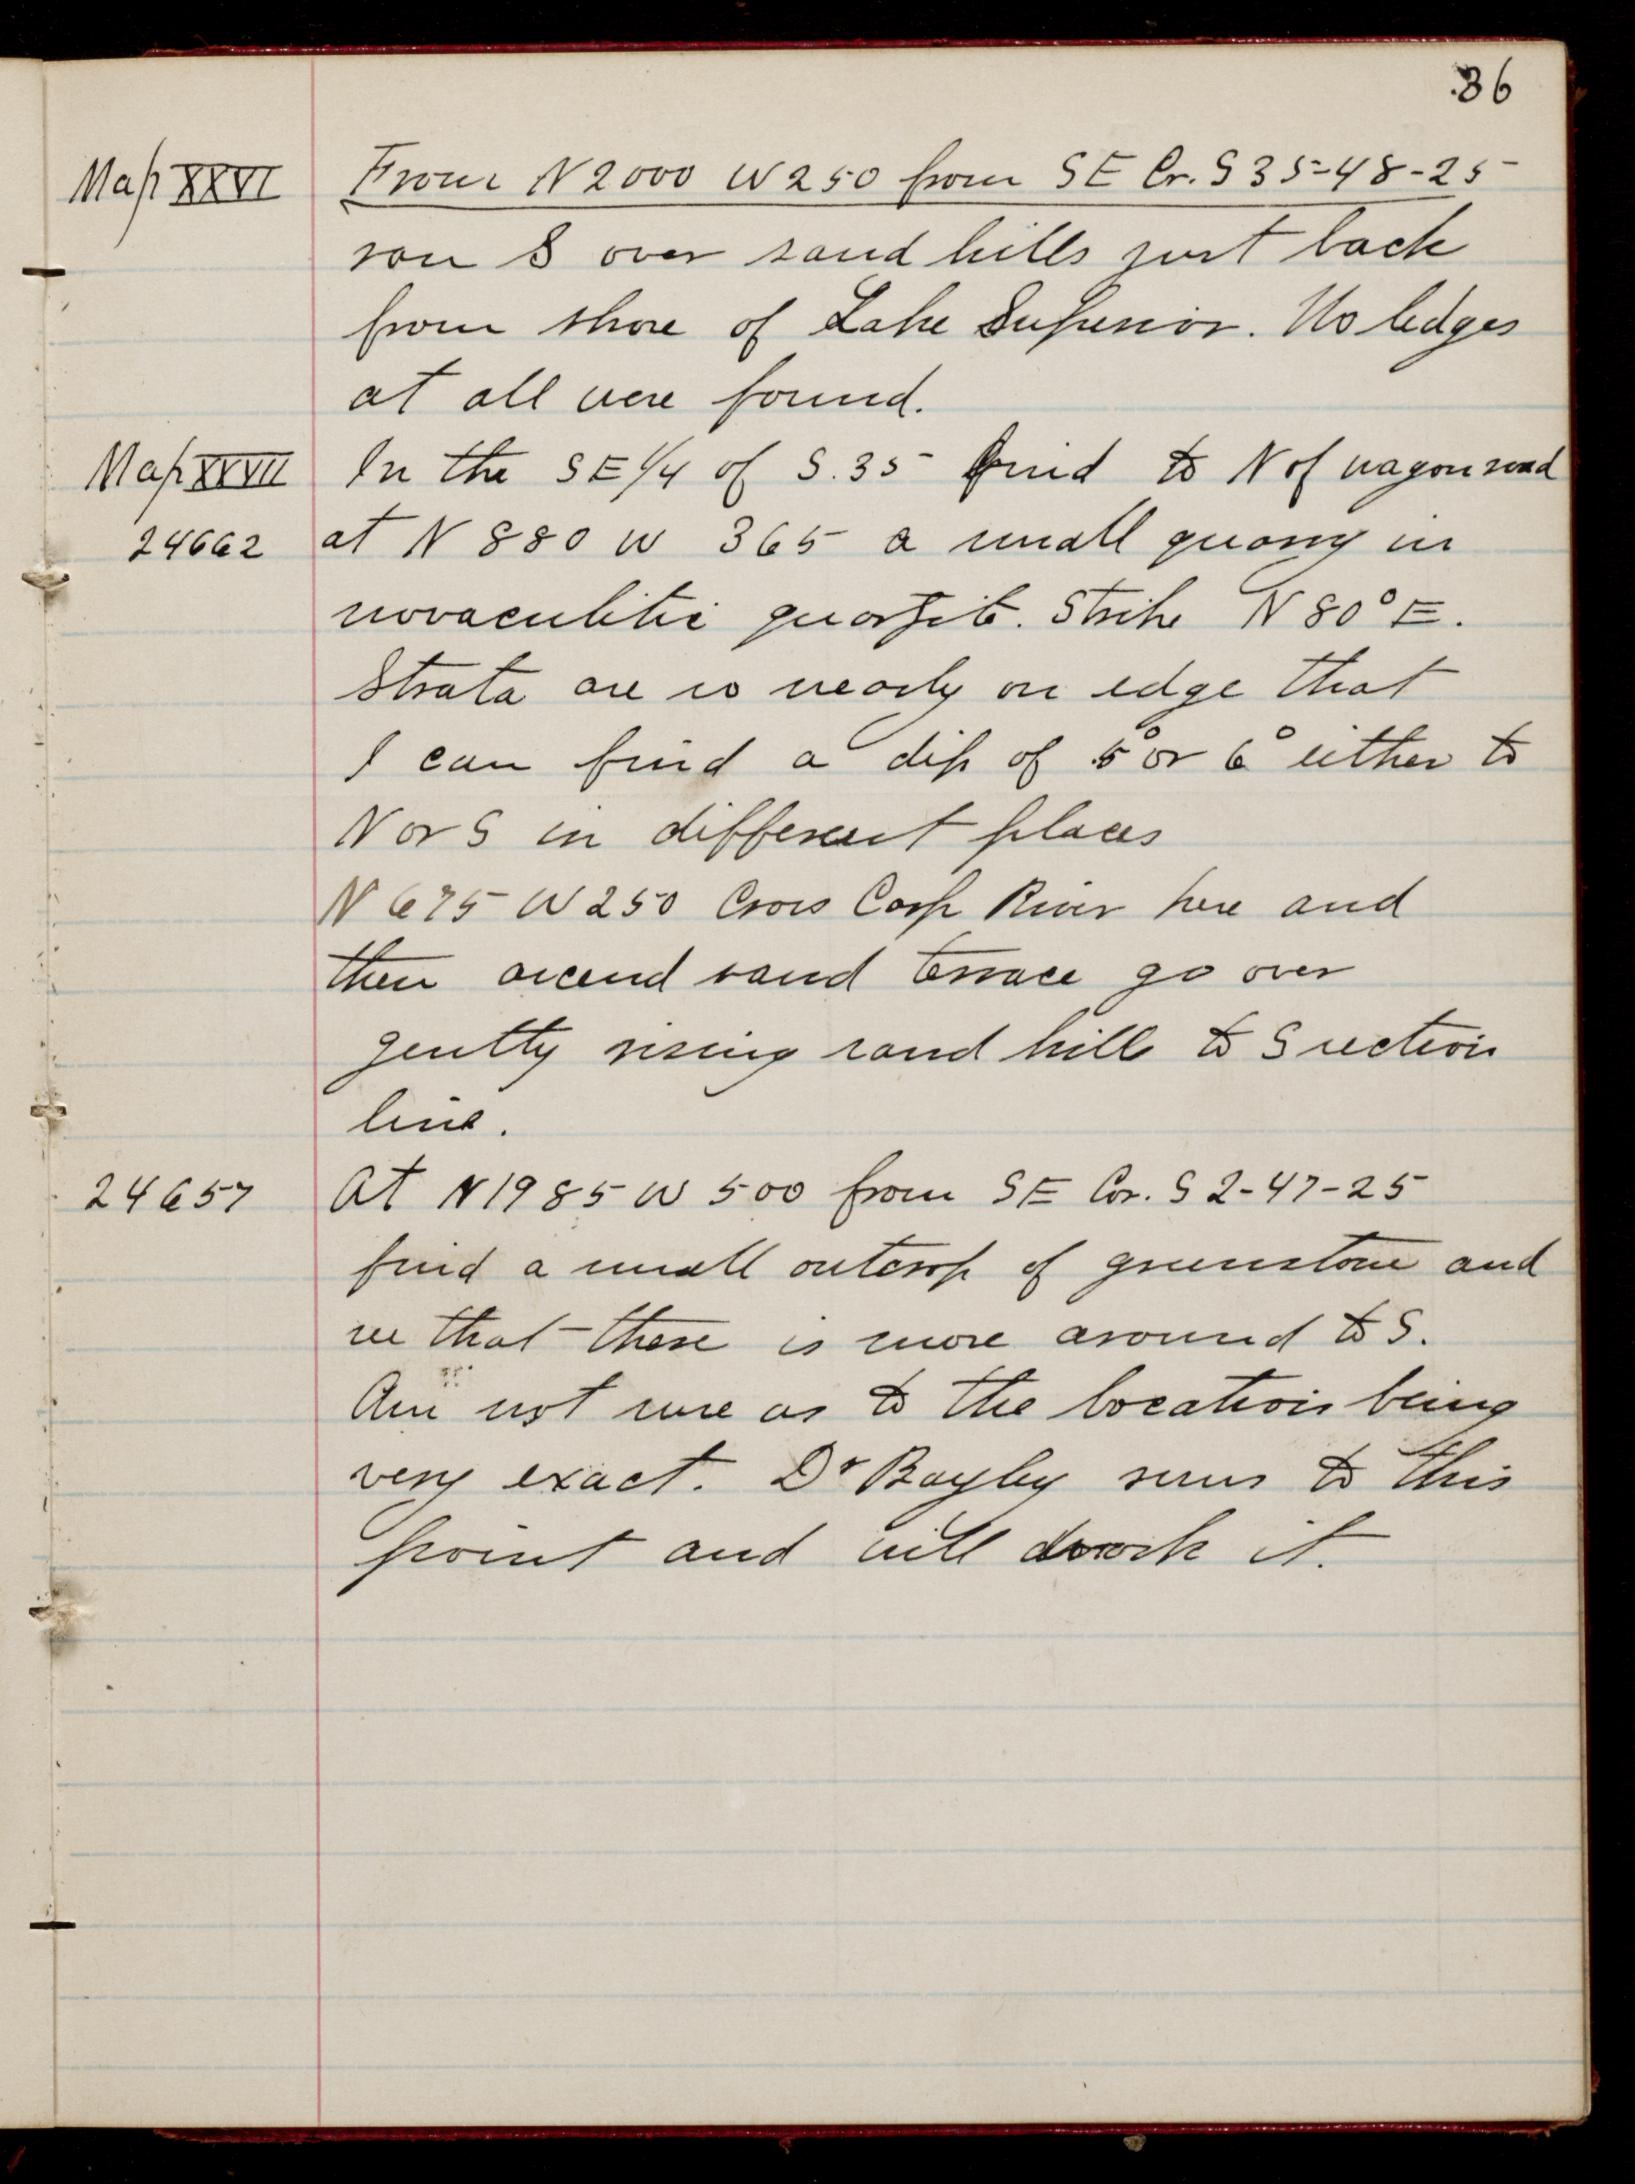 36
Map XXVI From N2000 W250 from SE Cr. S35-48-25
ran S over sand hills just back
from shore of Lake Superior. No ledges
at all were found.
Map XXVII In the SE 1/4 of S.35 find to N of wagon road
24662 at N 880 W 365 a small quarry in
novaculitic quartzite. Strike N 80° E.
Strata are so nearly on edge that
I can find a dip of 5° or 6° either to
N or S in different places
N 675 W 250 Cross Carp River here and
then ascend sand terrace go over
gently rising sand hill to S section
line.
24657 At N1985 W 500 from SE Cor. S 2-47-25
find a small outcrop of greenstone and
see that there is more around to S.
Am not sure as to the location being
very exact. Dr Bayley runs to this
point and will work it.